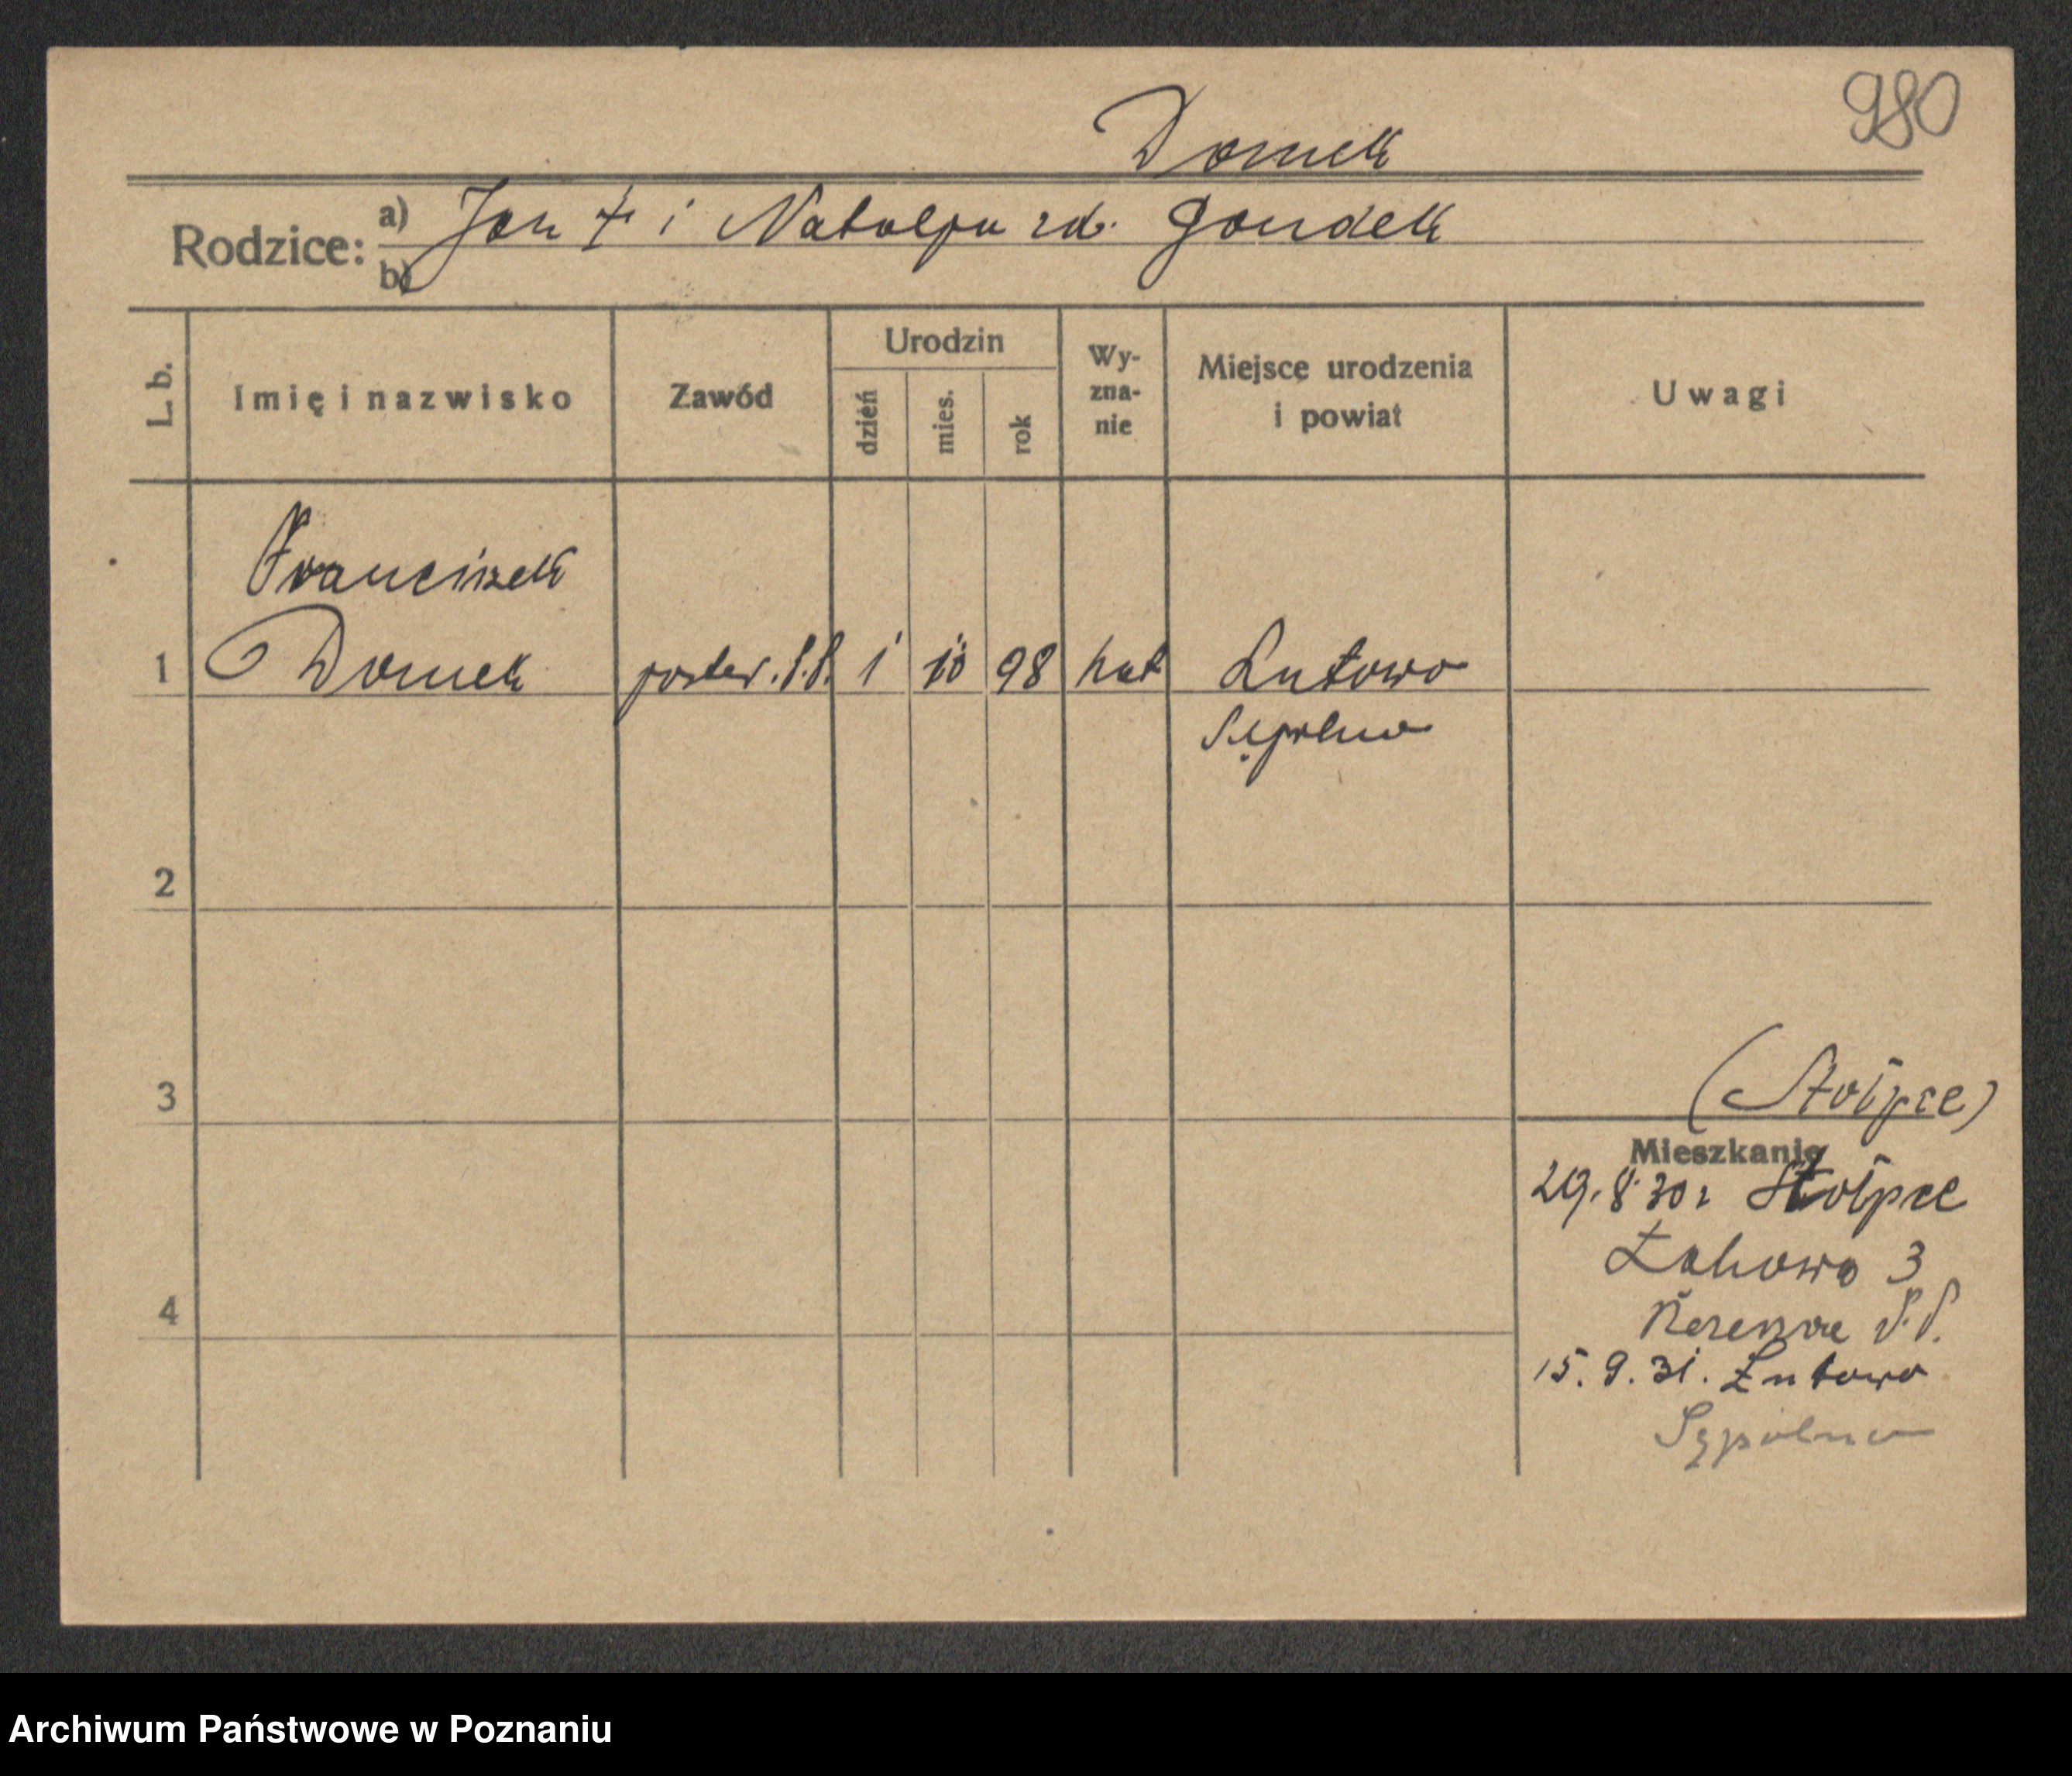 980
Domek
Rodzice: a) Jan † i Natalja zd. Gondek
b)
L. b. Imię i nazwisko Zawód Urodzin dzień mies. rok Wy-zna-nie Miejsce urodzenia i powiat Uwagi
Franciszek
1 Domek poster. P.P. 1 10 98 kat Lutowo
Sępolno
2
3
(Stołpce)
Mieszkanie
29.8.30 r Stołpce
3
4
P.P.
15.9.31. Lutowo
Sępolno
Archiwum Państwowe w Poznaniu